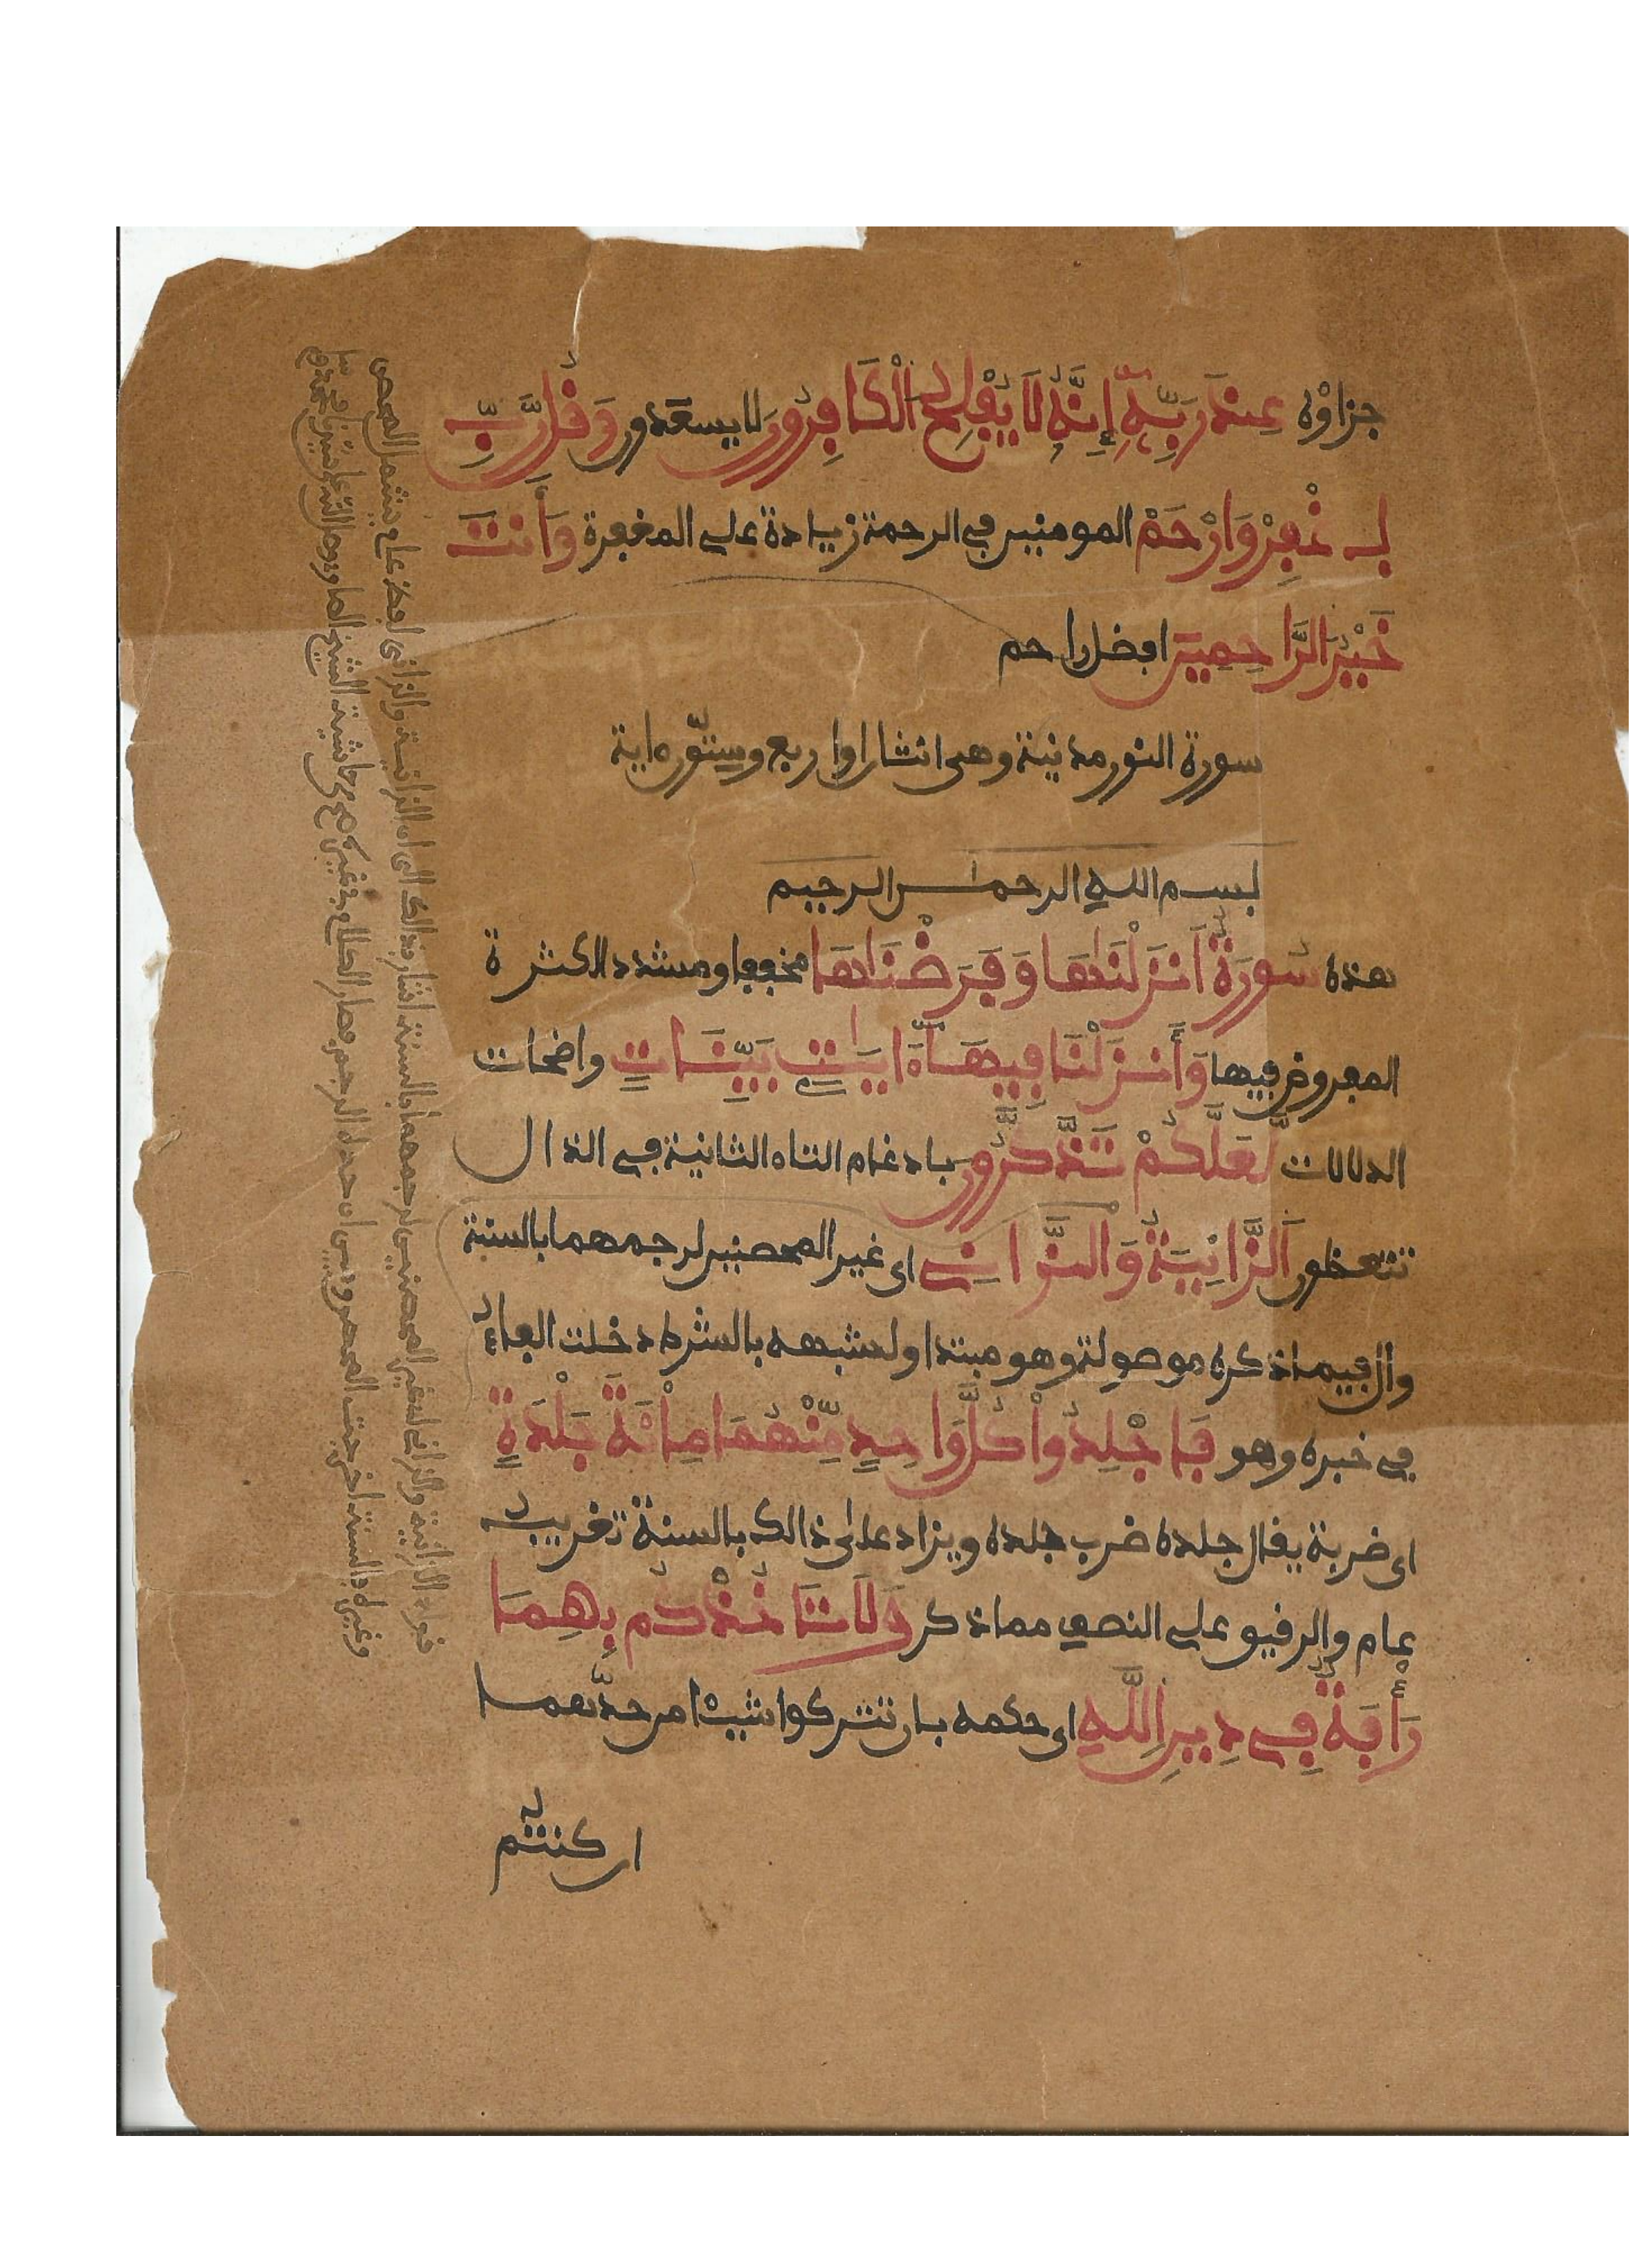 جزاؤه عِندَ رَبِّهِۦٓ إِنَّهُۥ لَا يُفْلِحُ اَلْكَافِرُونَ لا يسعدون وَقُل رَّبِّ
اِغْفِرْ وَارْحَمْ المومنين في الرحمة زيادة على المغفرة وَأَنتَ
خَيْرُ الرَّاحِمِينَ افضل راحم
سورة النور مدنية وهى اثنتان او اربع وستّون ءاية
بسم الله الرحمٰن الرحيم
هذه سُورَةٌ اَنزَلْنَٰهَا وَفَرَضْنَٰهَا مخففا ومشددا لكثرة
المفروض فيها وَأَنزَلْنَا فِيهَآ ءَايَٰتٍۭ بَيِّنَاتٍ واضحات
الدلالات لَّعَلَّكُمْ تَذَّكَّرُونَ بادغام التاء الثانية في الذال
تتعظون اَلزَّانِيَةُ وَالزَّانِے اى غير المحصنين لرجمهما بالسنة
وال فيما ذكره موصولة وهو مبتدا ولشبهه بالشرط دخلت الفاء
في خبره وهو فَاجْلِدُواْ كُلَّ وَٰحِدٍ مِّنْهُمَا مِاْئَةَ جَلْدَةٍ
اى ضربة يقال جلده ضرب جلده ويزاد على ذالك بالسنة تغريب
عام والرقيق على النصف مما ذكر وَلَا تَاخُذْكُم بِهِمَا
رَأْفَةٌ فِے دِينِ اِللَّهِ اى حكمه بان تتركوا شيئا من حدّهما
ان كنتم
قوله الزانية والزاني اى غير المحصنين لرجمهما بالسنة اشار بذالك الى ان الزانية والزانى لفظ عام يشمل المحصن
وغيره والسنة اخرجت المحصن وبين ان حده الرجم فصار الكلام في غيره